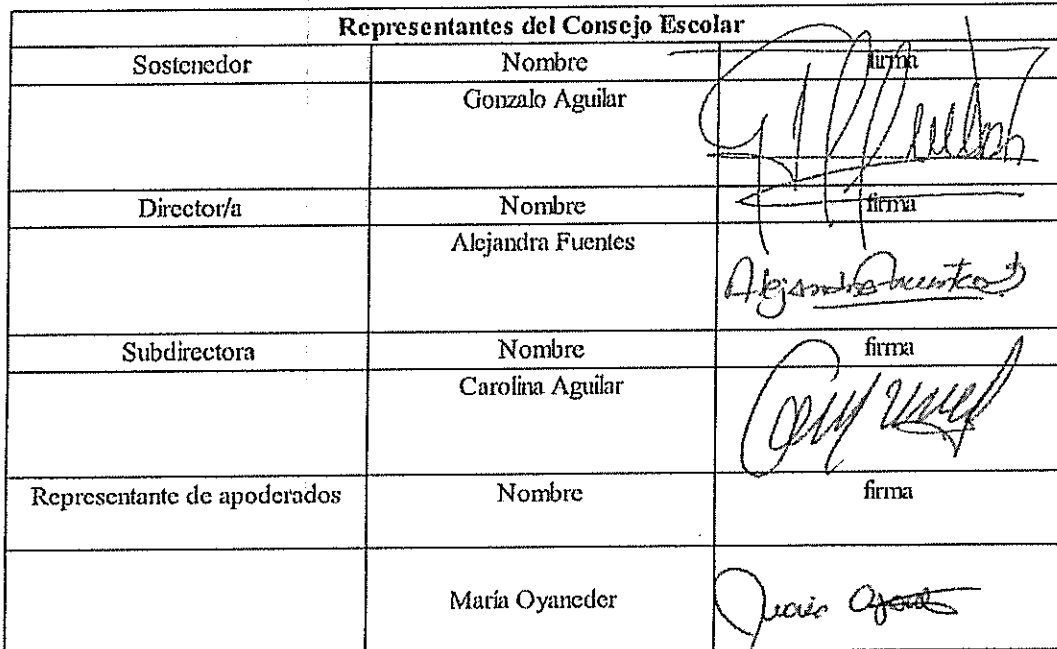 Representantes del Consejo Escolar
Sostenedor Nombre firma
Gonzalo Aguilar
Director/a Nombre firma
Alejandra Fuentes
Alejandra Fuentes
Subdirectora Nombre firma
Carolina Aguilar
Representante de apoderados Nombre firma
María Oyaneder